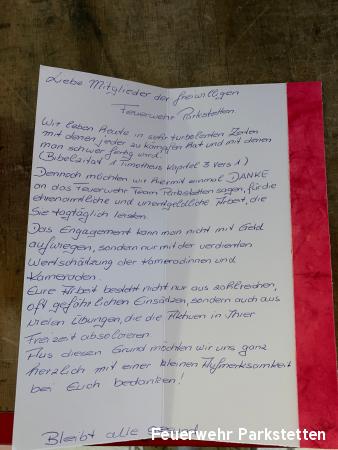 Liebe Mitglieder der freiwilligen
Feuerwehr Parkstetten.
Wir leben Heute in sehr turbolenten Zeiten
mit denen jeder zu kämpfen hat und mit denen
man schwer fertig wird.
(Bibelzitat 1 Timotheus Kapitel 3 Vers 1)
Dennoch möchten wir hiermit einmal DANKE
an das Feuerwehr Team Parkstetten sagen, für die
ehrenamtliche und unentgeldliche Arbeit, die
Sie tagtäglich leisten.
Das Engagement kann man nicht mit Geld
aufwiegen, sondern nur mit der verdienten
Wertschätzung der Kamerodinnen und
Kameraden.
Eure Arbeit besteht nicht nur aus zahlreichen,
oft gefährlichen Einsätzen, sondern auch aus
vielen Übungen, die die Aktiven in Ihrer
Freizeit absolvieren.
Aus diesem Grund möchten wir uns ganz
herzlich mit einer kleinen Aufmerksamkeit
bei Euch bedanken!
Bleibt alle
Feuerwehr Parkstetten